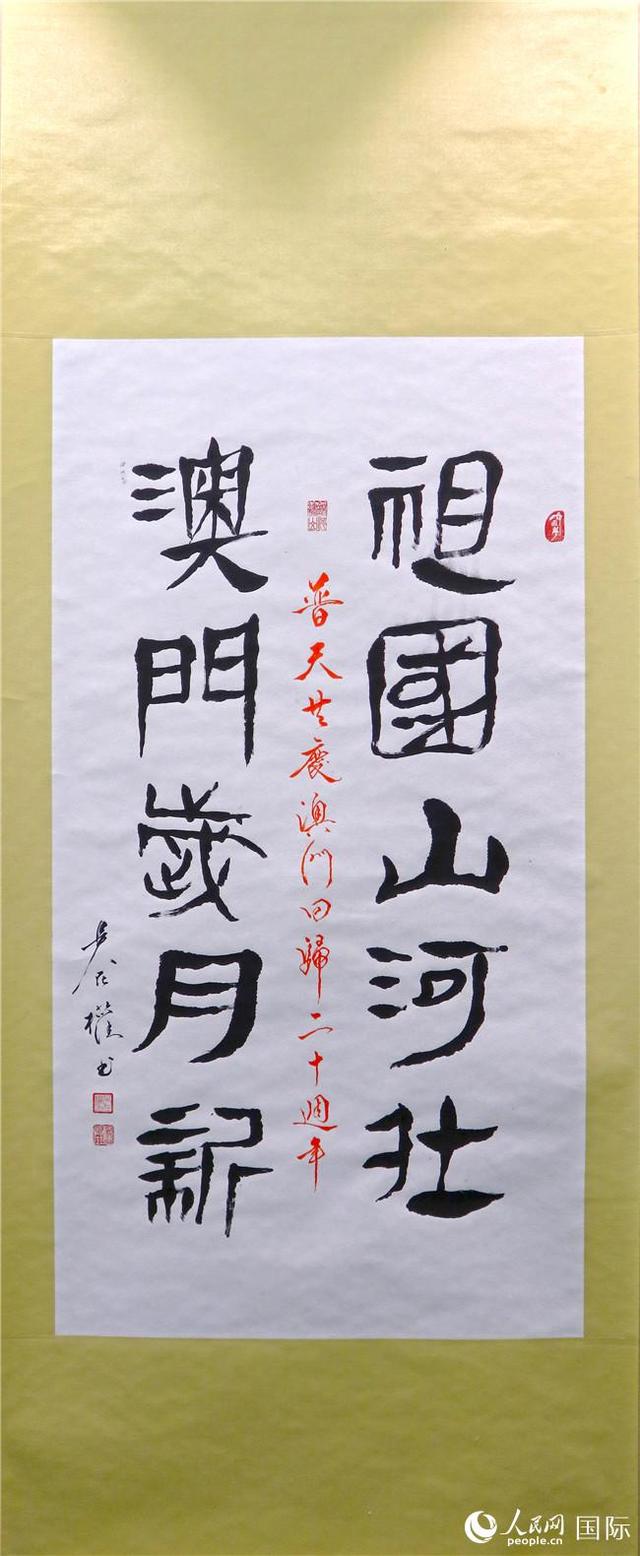 祖國山河壯
普天共慶澳门回歸二十週年
澳門歲月新
人民网 国际
people.cn